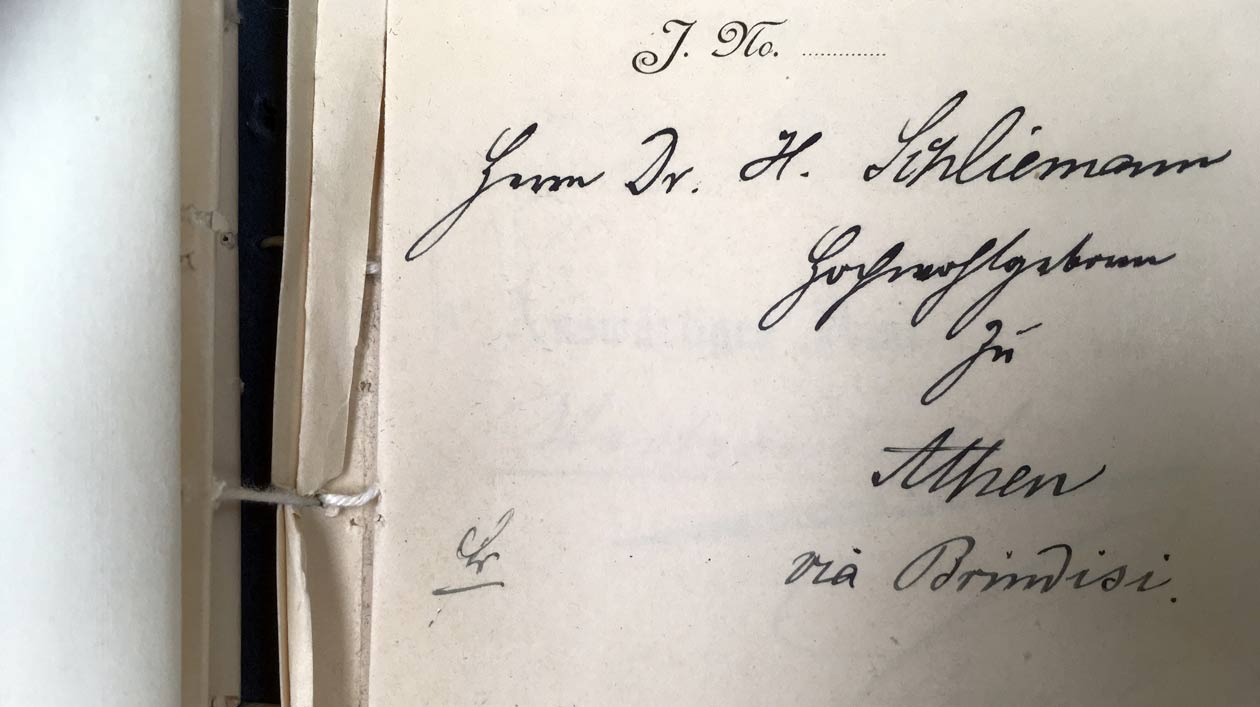 J. No. ..............
Herrn Dr. H. Schliemann
Hochwohlgeboren
zu
Athen
via Brindisi.